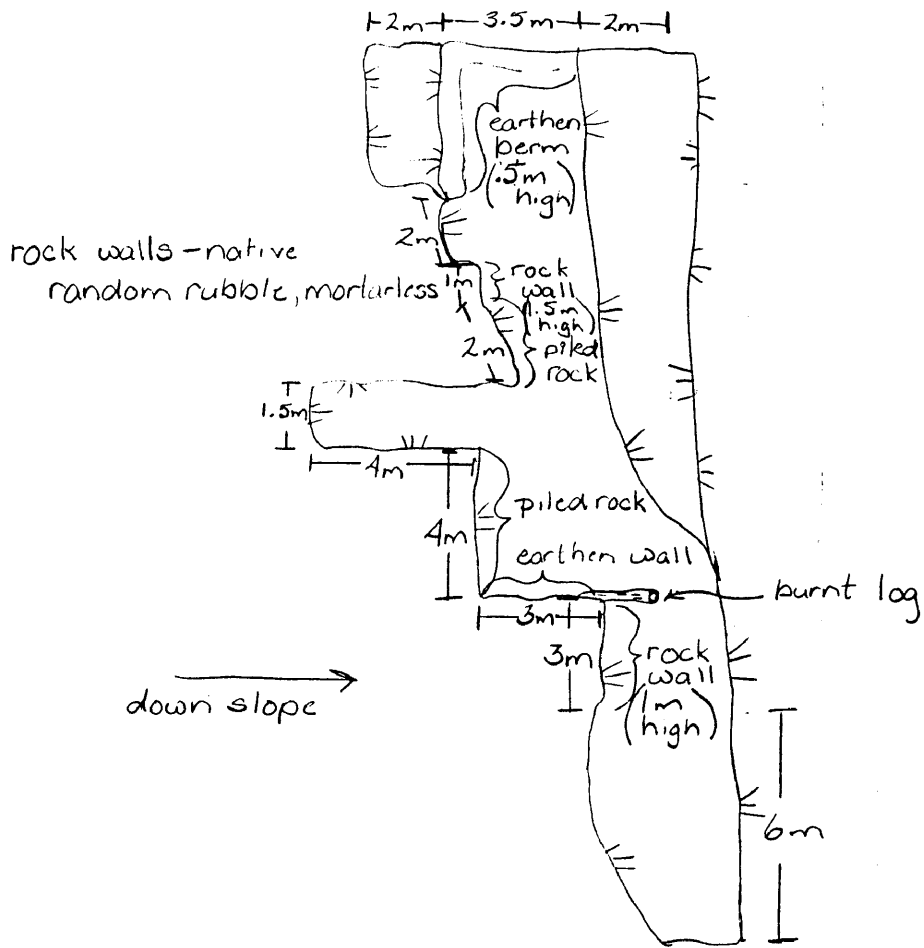 2m 3.5m 2m
earthen
berm
(.5m
high)
2m
rock walls - native
random rubble, mortarless
1m
rock
wall
(1.5m
high)
2m
piled
rock
1.5m
4m
piled rock
4m
earthen wall
burnt log
3m
3m
rock
wall
(1m
high)
down slope
6m